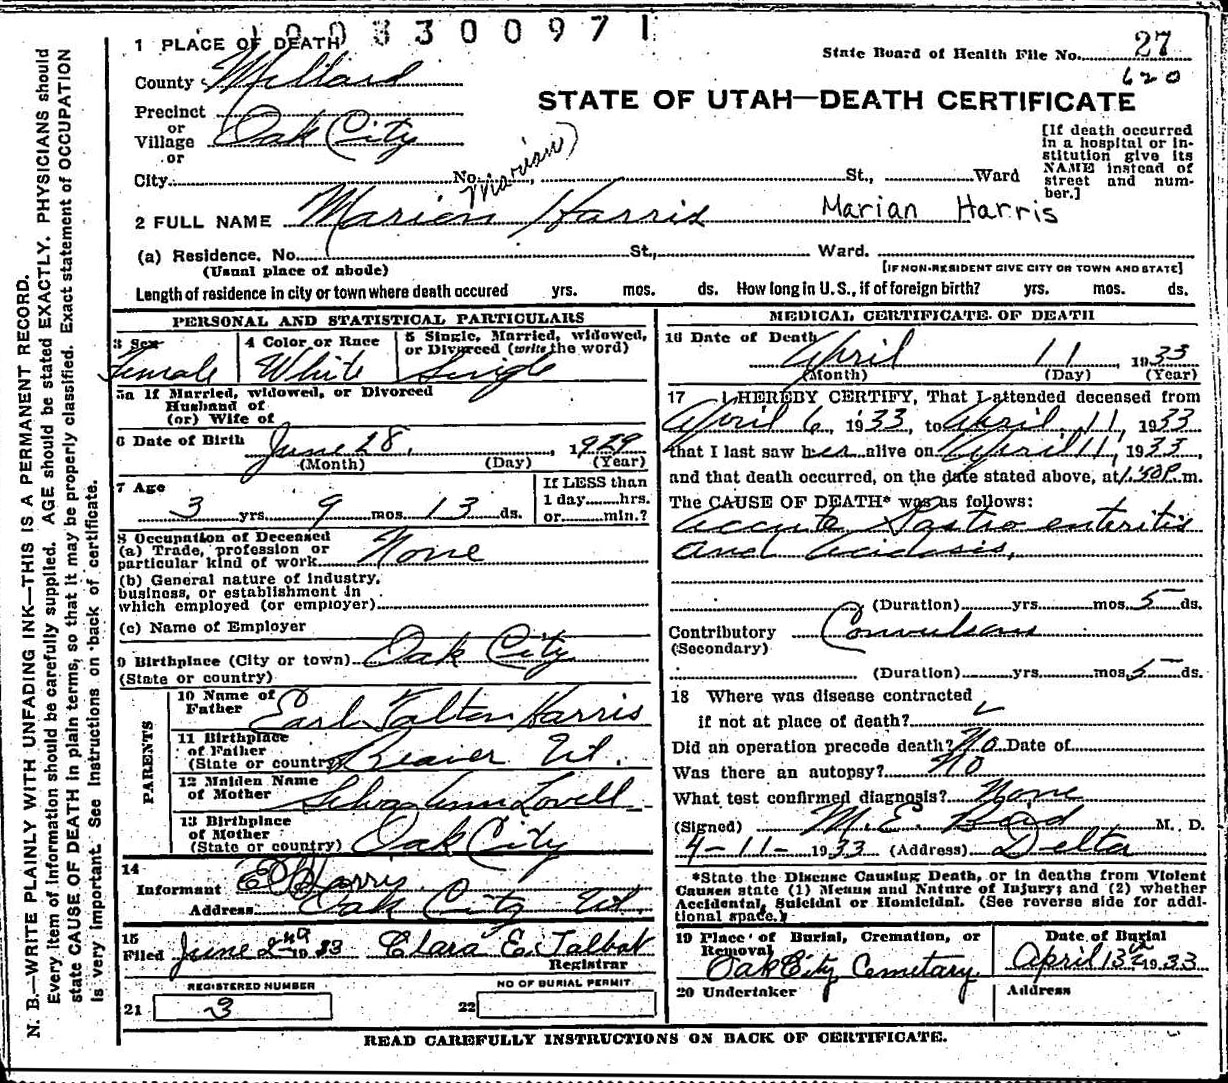 1003300971
1 PLACE OF DEATH
State Board of Health File No. 27
620
County Millard
STATE OF UTAH—DEATH CERTIFICATE
Precinct
or
Village Oak City
or
City No. St., Ward
Marian)
[If death occurred
in a hospital or in-
stitution give its
NAME instead of
street and num-
ber.]
2 FULL NAME Marien Harris Marian Harris
(a) Residence. No. St., Ward.
(Usual place of abode) [IF NON-RESIDENT GIVE CITY OR TOWN AND STATE]
Length of residence in city or town where death occured yrs. mos. ds. How long in U. S., if of foreign birth? yrs. mos. ds.
PERSONAL AND STATISTICAL PARTICULARS
3 Sex
Female
4 Color or Race
White
5 Single, Married, widowed,
or Divorced (write the word)
Single
5a If Married, widowed, or Divorced
Husband of
(or) Wife of
6 Date of Birth June 28, 1929
(Month) (Day) (Year)
7 Age
3 yrs. 9 mos. 13 ds.
If LESS than
1 day hrs.
or min.?
8 Occupation of Deceased
(a) Trade, profession or
particular kind of work None
(b) General nature of industry,
business, or establishment in
which employed (or employer)
(c) Name of Employer
9 Birthplace (City or town) Oak City
(State or country)
PARENTS
10 Name of
Father Earl Falton Harris
11 Birthplace
of Father
(State or country) Beaver Ut.
12 Maiden Name
of Mother Lovell
13 Birthplace
of Mother
(State or country) Oak City
14
Informant
Address Oak City Ut.
15
Filed June 2nd 1933 Clara E. Talbot
Registrar
REGISTERED NUMBER
21 3
NO OF BURIAL PERMIT
22
MEDICAL CERTIFICATE OF DEATH
16 Date of Death April 11 1933
(Month) (Day) (Year)
17 I HEREBY CERTIFY, That I attended deceased from
April 6, 1933, to April 11, 1933
that I last saw her alive on April 11, 1933,
and that death occurred, on the date stated above, at m.
The CAUSE OF DEATH* was as follows:
Accute Gastro enteritis
and Acidosis,
(Duration) yrs. mos. 5 ds.
Contributory Convulsions
(Secondary)
(Duration) yrs. mos. 5 ds.
18 Where was disease contracted
if not at place of death?
Did an operation precede death? No Date of
Was there an autopsy? No
What test confirmed diagnosis? None
(Signed) M. E. Bird M. D.
4-11-1933 (Address) Delta
*State the Disease Causing Death, or in deaths from Violent
Causes state (1) Means and Nature of Injury; and (2) whether
Accidental, Suicidal or Homicidal. (See reverse side for addi-
tional space.)
19 Place of Burial, Cremation, or
Removal
Oak City Cemetary
Date of Burial
April 13th 1933
20 Undertaker
Address
READ CAREFULLY INSTRUCTIONS ON BACK OF CERTIFICATE.
N. B.—WRITE PLAINLY WITH UNFADING INK—THIS IS A PERMANENT RECORD.
Every item of information should be carefully supplied. AGE should be stated EXACTLY. PHYSICIANS should
state CAUSE OF DEATH in plain terms, so that it may be properly classified. Exact statement of OCCUPATION
is very important. See Instructions on back of certificate.